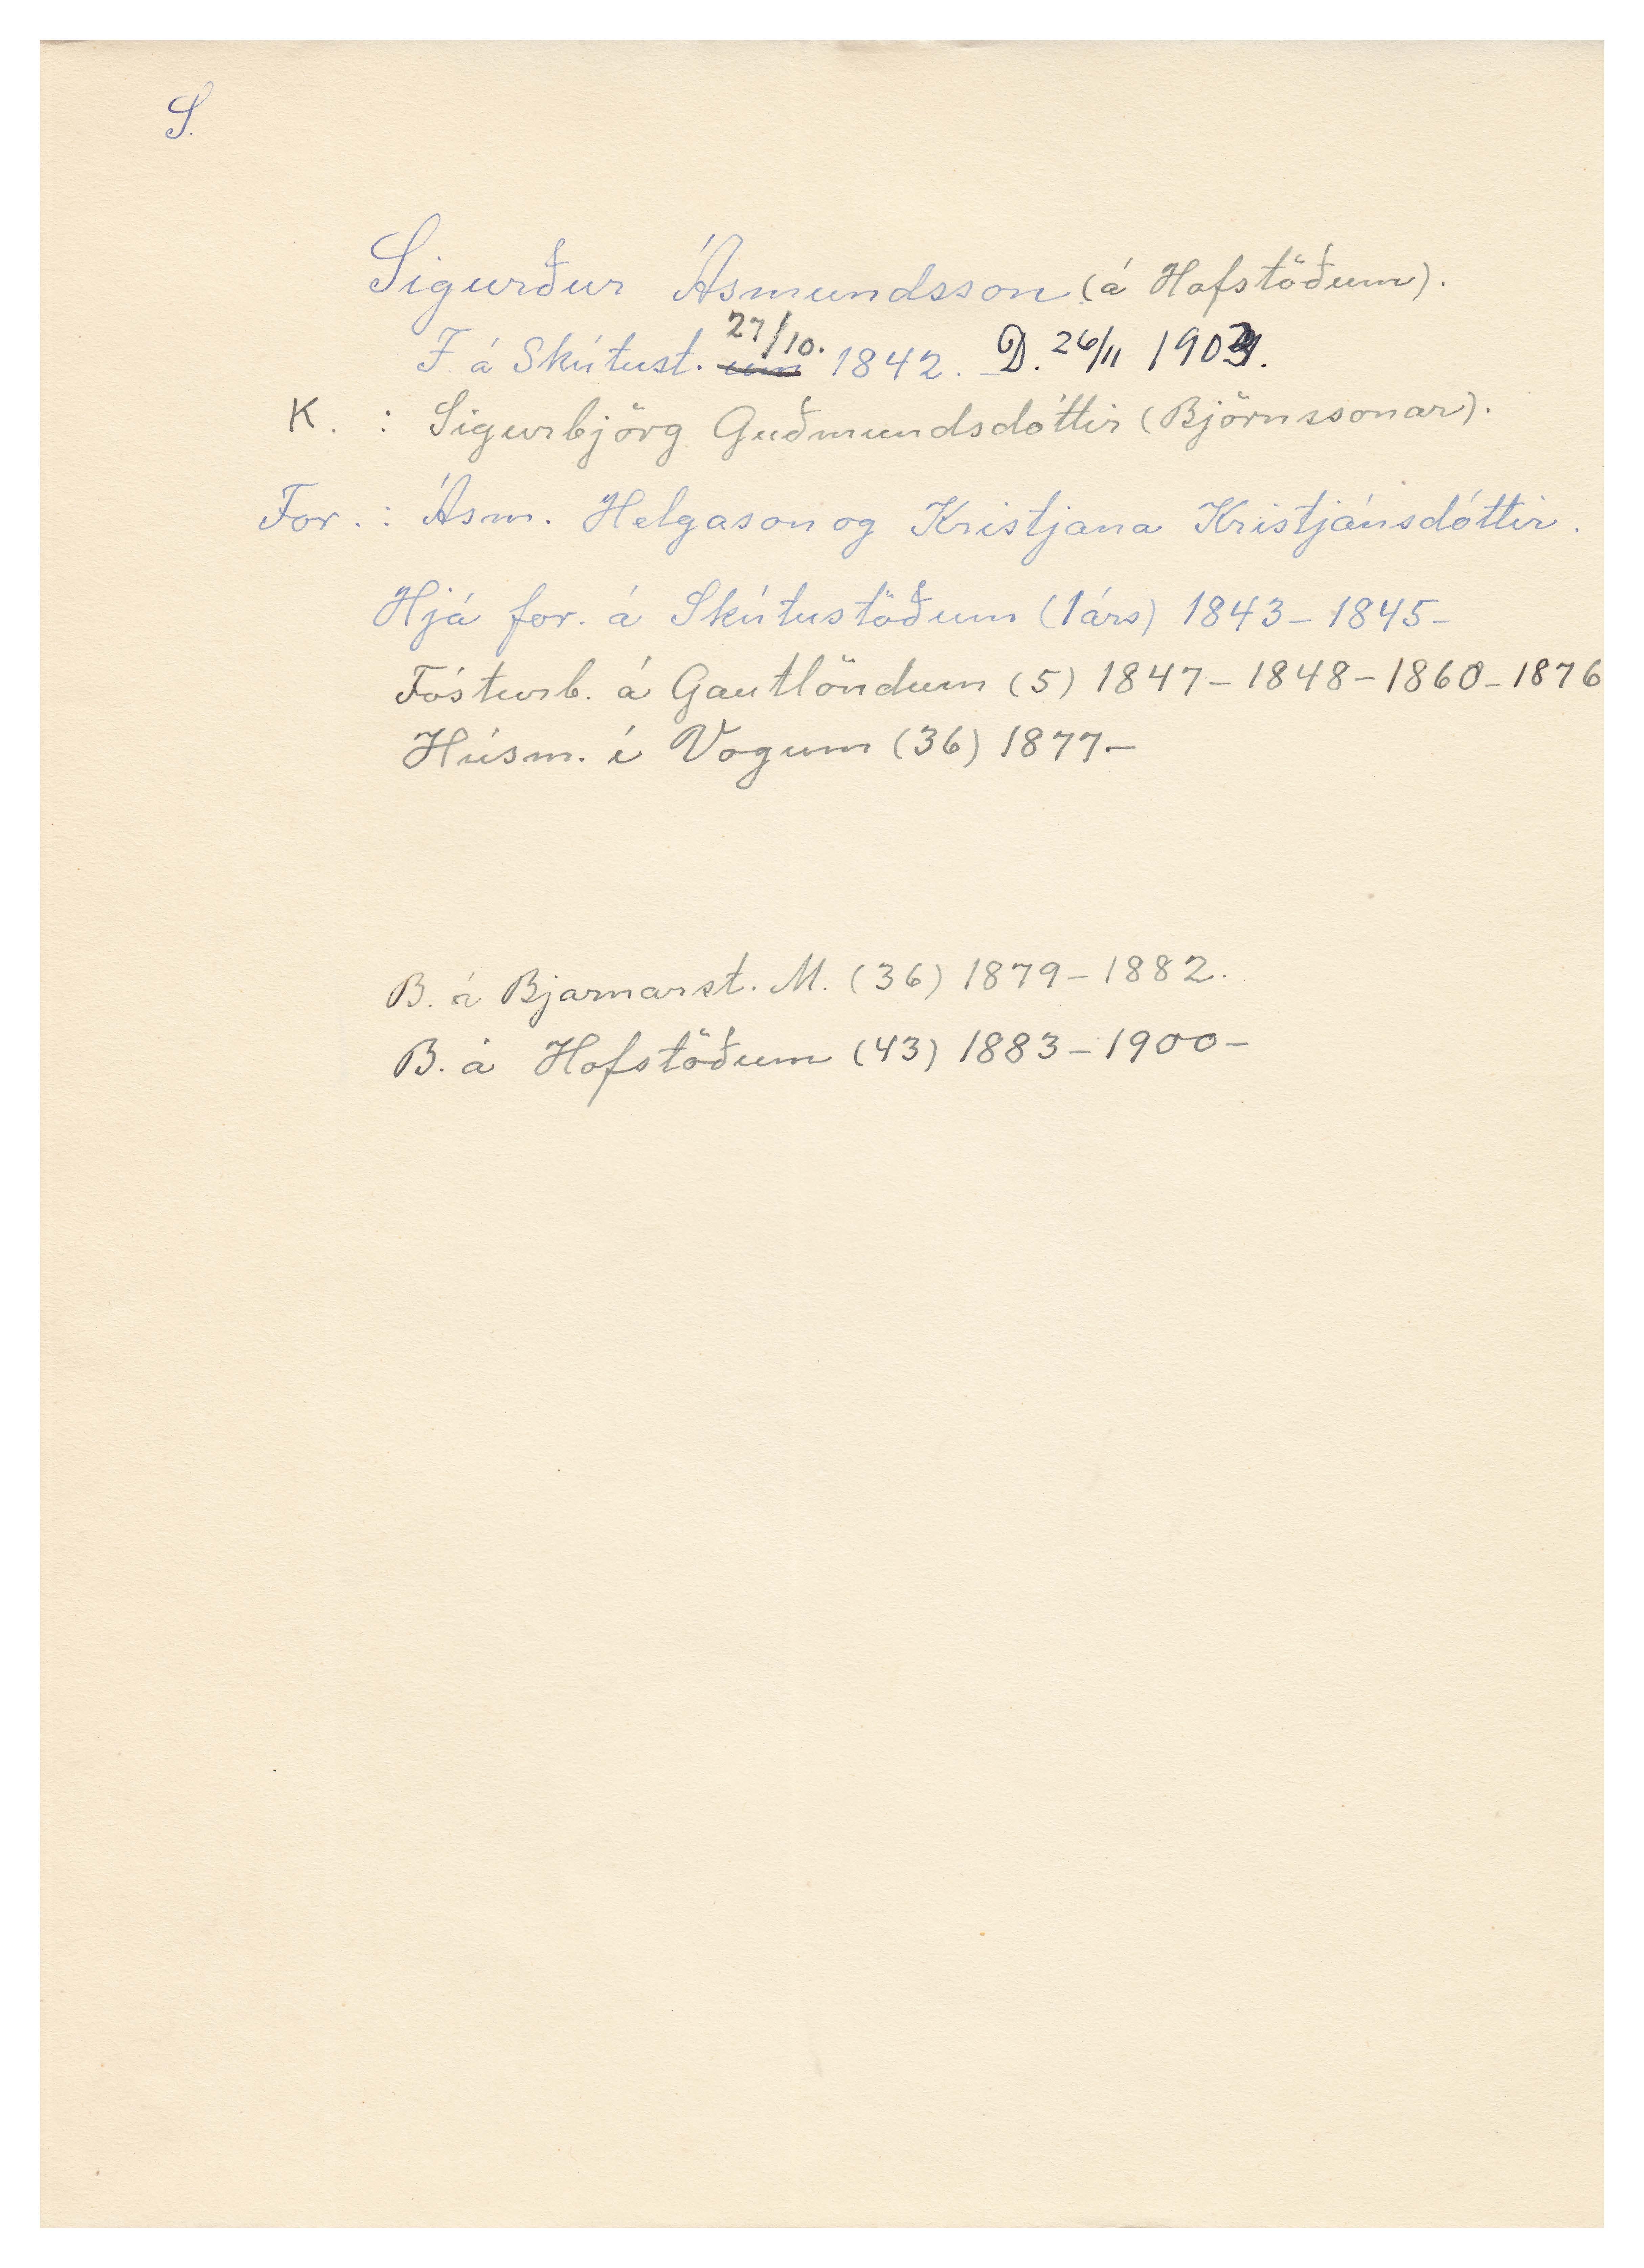 S.
Sigurður Ásmundsson (á Hofstöðum).
27/10.
F. á Skútust. 1842. D. 26/11
K. : Sigurbjörg Guðmundsdóttir (Björnssonar).
For. : Ásm. Helgason og Kristjana Kristjánsdóttir.
Hjá for. á Skútustöðum (1árs) 1843 – 1845 –
Fósturb. á Gautlöndum (5) 1847 – 1848 – 1860 – 1876
Húsm. í Vogum (36) 1877 –
B. á Bjarnarst. M. (36) 1879 – 1882.
B. á Hofstöðum (43) 1883 – 1900 –